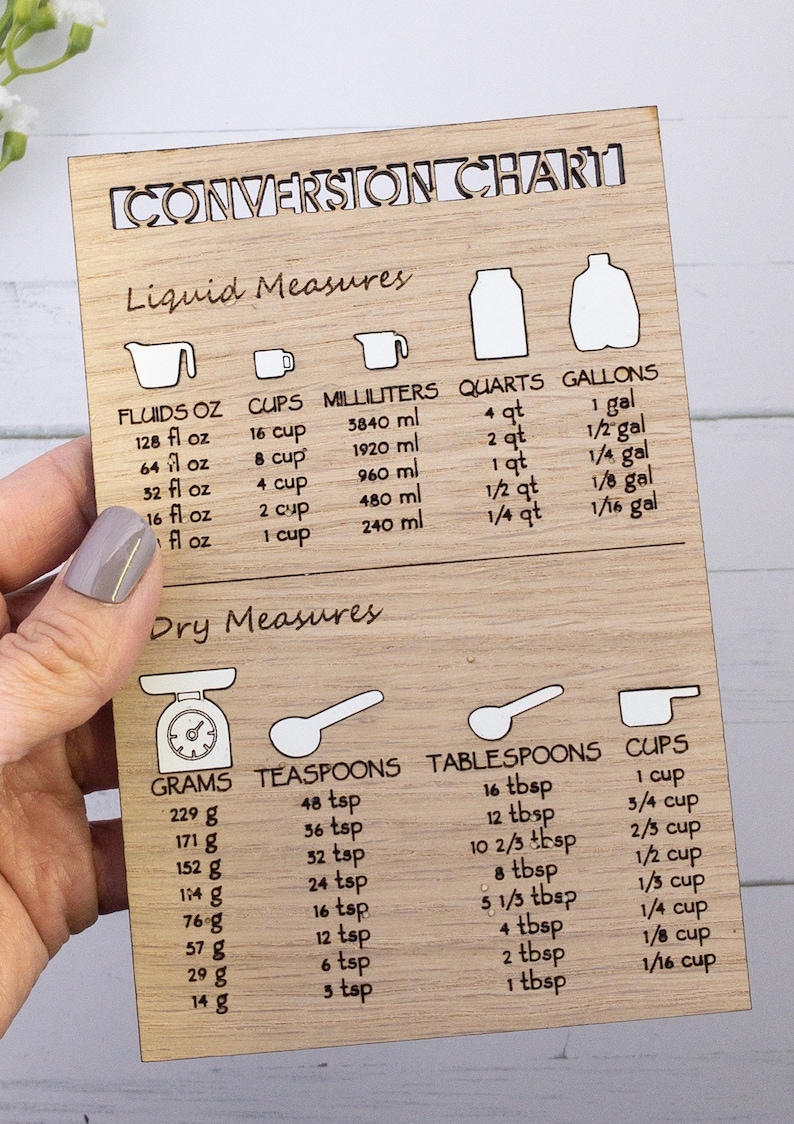 CONVERSION CHART
Liquid Measures
FLUIDS OZ CUPS MILLILITERS QUARTS GALLONS
128 fl oz 16 cup 3840 ml 4 qt 1 gal
64 fl oz 8 cup 1920 ml 2 qt 1/2 gal
32 fl oz 4 cup 960 ml 1 qt 1/4 gal
16 fl oz 2 cup 480 ml 1/2 qt 1/8 gal
fl oz 1 cup 240 ml 1/4 qt 1/16 gal
Dry Measures
GRAMS TEASPOONS TABLESPOONS CUPS
229 g 48 tsp 16 tbsp 1 cup
171 g 36 tsp 12 tbsp 3/4 cup
152 g 32 tsp 10 2/3 tbsp 2/3 cup
114 g 24 tsp 8 tbsp 1/2 cup
76 g 16 tsp 5 1/3 tbsp 1/3 cup
57 g 12 tsp 4 tbsp 1/4 cup
29 g 6 tsp 2 tbsp 1/8 cup
14 g 3 tsp 1 tbsp 1/16 cup